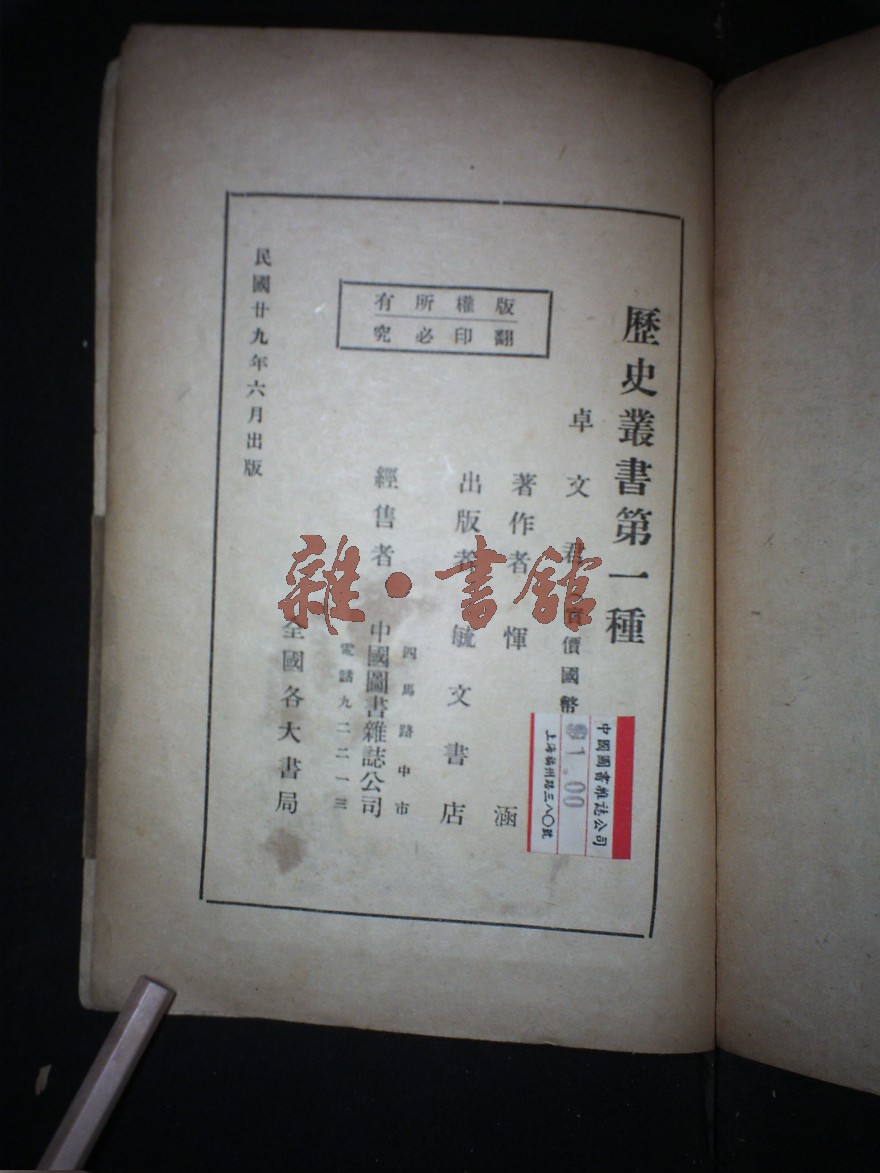 歷史叢書第一種
卓文君 價國幣
中國圖書雜誌公司
1.00
上海福州路三八〇號
著作者 惲涵
出版者 毓文書店
四馬路中市
經售者 中國圖書雜誌公司
電話九二二一三
全國各大書局
版權所有
翻印必究
民國廿九年六月出版
雜·書館